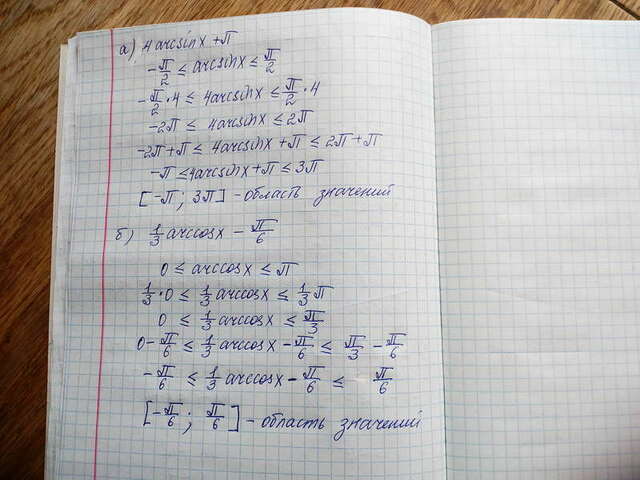 а) 4 arcsin x + π
-π/2 ≤ arcsin x ≤ π/2
-π/2 · 4 ≤ 4arcsin x ≤ π/2 · 4
-2π ≤ 4arcsin x ≤ 2π
-2π + π ≤ 4arcsin x + π ≤ 2π + π
-π ≤ 4arcsin x + π ≤ 3π
[-π; 3π] - область значений
б) 1/3 arccos x - π/6
0 ≤ arccos x ≤ π
1/3 · 0 ≤ 1/3 arccos x ≤ 1/3 π
0 ≤ 1/3 arccos x ≤ π/3
0 - π/6 ≤ 1/3 arccos x - π/6 ≤ π/3 - π/6
-π/6 ≤ 1/3 arccos x - π/6 ≤ π/6
[-π/6; π/6] - область значений